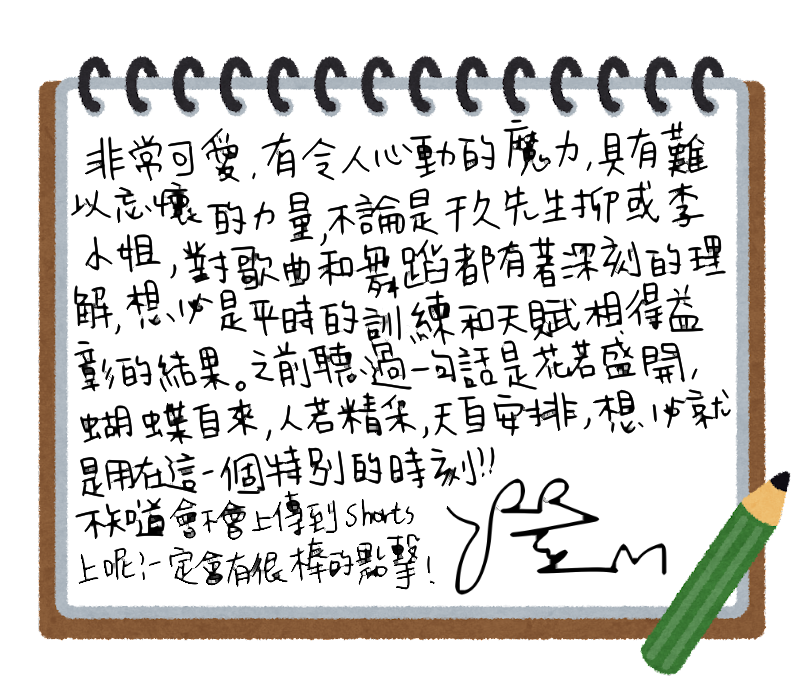 非常可愛,有令人心動的魔力,具有難
以忘懷的力量,不論是千久先生抑或李
小姐,對歌曲和舞蹈都有著深刻的理
解,想必是平時的訓練和天賦相得益
彰的結果。之前聽過一句話是花若盛開,
蝴蝶自來,人若精彩,天自安排,想必就
是用在這一個特別的時刻!!
不知道會不會上傳到shorts
上呢?一定會有很棒的點擊!